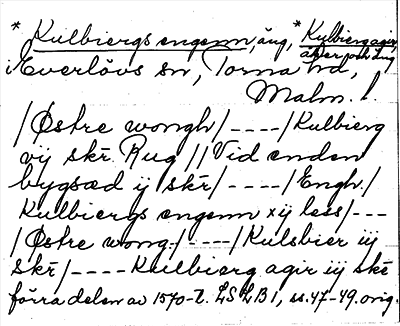 * Kulbiergs engenn, äng, * Kulbierg agir, åker och äng
i Everlövs sn, Torna hd,
Malm. l.
/Østre wongh/----/Kulbierg
vij skr. Rug // Vid enden
bygsæd ij skr/----/Engh/
Kulbiergs engenn xij less/---
/Østre wong/----/Kulsbier iij
skr/----Kulbierg agir iij skr
förra delen av 1570-t. LSLB1, ss. 47-49. orig.